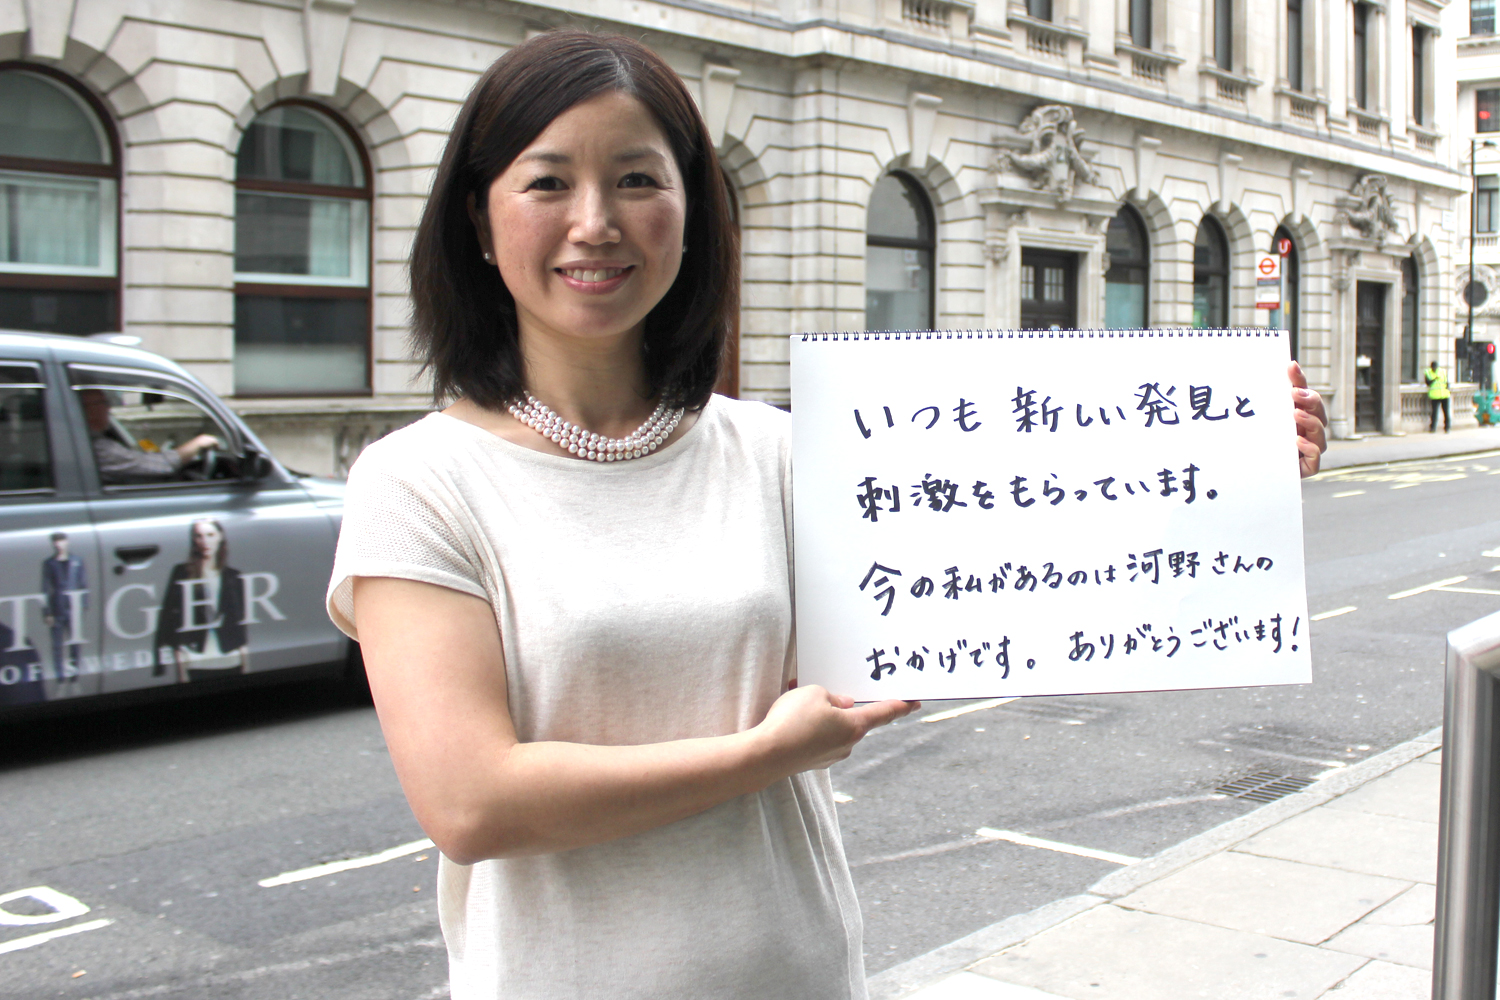 いつも新しい発見と
刺激をもらっています。
今の私があるのは河野さんの
おかげです。 ありがとうございます!
TIGER
OF SWEDEN